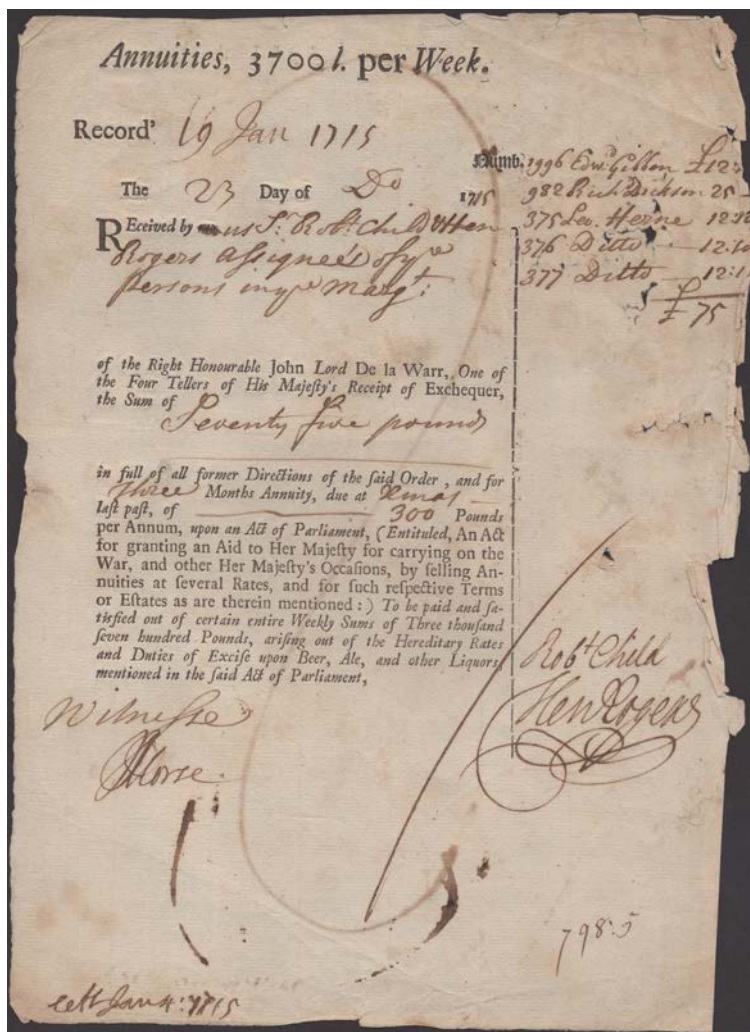 Annuities, 3700 l. per Week.
Record' 19 Jan 1715
The 23 Day of Do 1715
Received by us Sr. Robt. Child & Hen
Rogers assignees of ye
persons in ye Margt:
Numb. 1996 Edwd Gibbon £12:
982 Rich Dickson 25 —
375 Leo. Herne 12:
376 Ditto — 12:10
377 Ditto — 12:1
£75
of the Right Honourable John Lord De la Warr, One of
the Four Tellers of His Majeſty's Receipt of Exchequer,
the Sum of
Seventy five pounds
in full of all former Directions of the ſaid Order, and for
three Months Annuity, due at Xmas
laſt paſt, of 300 Pounds
per Annum, upon an Act of Parliament, (Entituled, An Act
for granting an Aid to Her Majeſty for carrying on the
War, and other Her Majeſty's Occaſions, by ſelling An-
nuities at ſeveral Rates, and for ſuch reſpective Terms
or Eſtates as are therein mentioned :) To be paid and ſa-
tisfied out of certain entire Weekly Sums of Three thouſand
ſeven hundred Pounds, ariſing out of the Hereditary Rates
and Duties of Exciſe upon Beer, Ale, and other Liquors
mentioned in the ſaid Act of Parliament,
Robt Child
Hen Rogers
Witnesse
Morse.
798:5
Jan 4: 1715